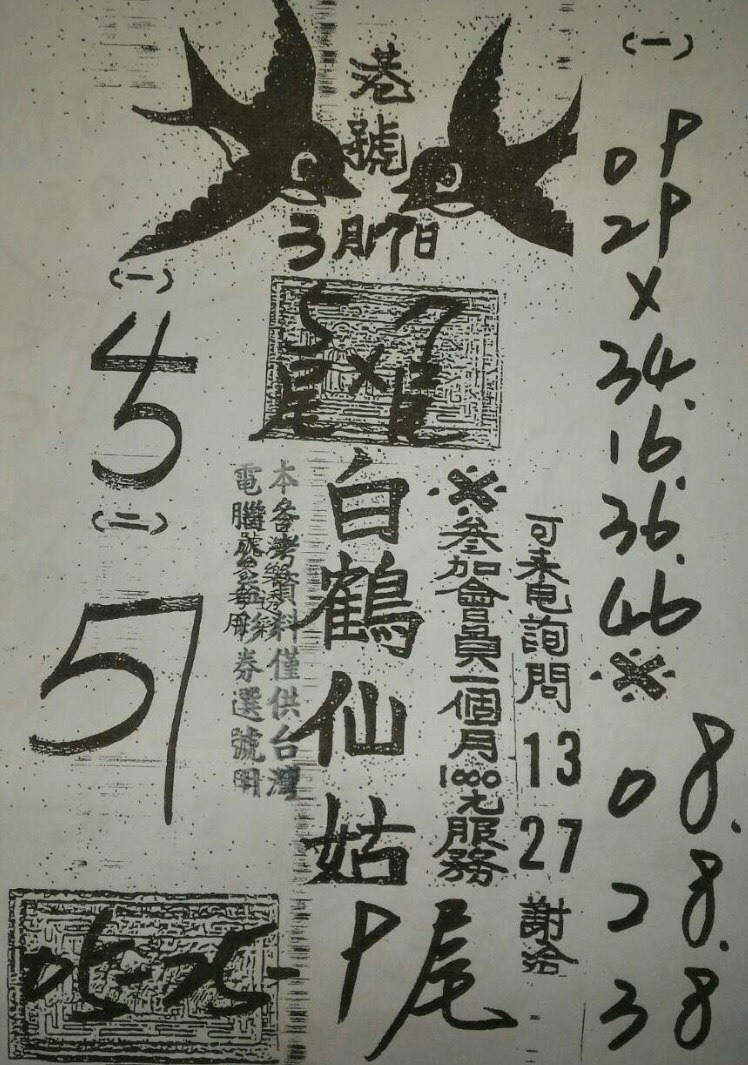 港號
3月17日
(一)
45
5 × 7
尾 尾
(二)
57
白鶴仙姑
本參考資料僅供台灣
電腦彩券選號用
※參加會員一個月1000元服務
可來電詢問 13 27 謝洽
05-25-9尾
(一)
09
29
×
34.
16.
36.
46
※
08.
28.
38